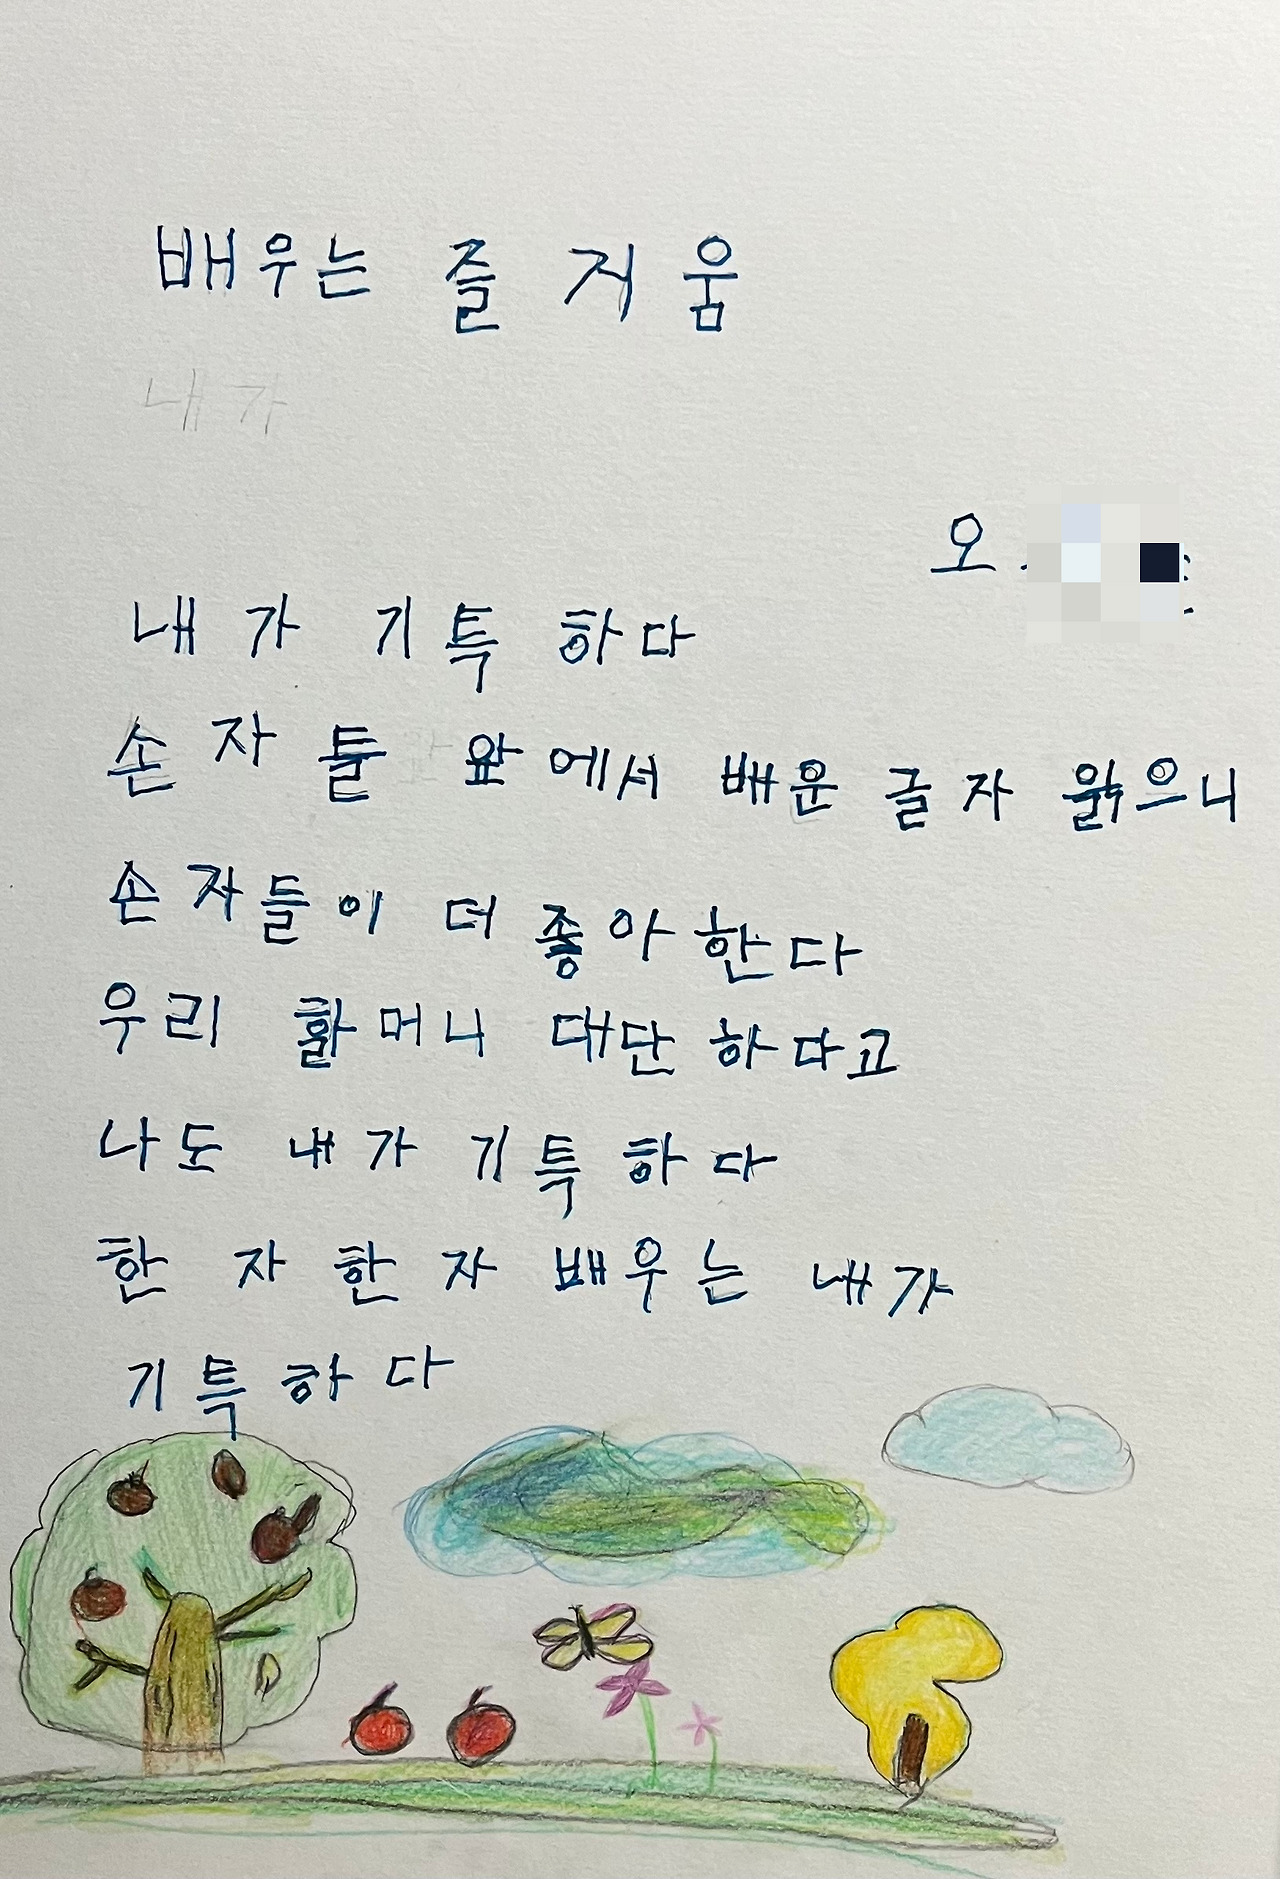 배우는 즐거움
내가
오
내가 기특하다
손자들 앞에서 배운 글자 읽으니
손자들이 더 좋아한다
우리 할머니 대단하다고
나도 내가 기특하다
한 자 한 자 배우는 내가
기특하다